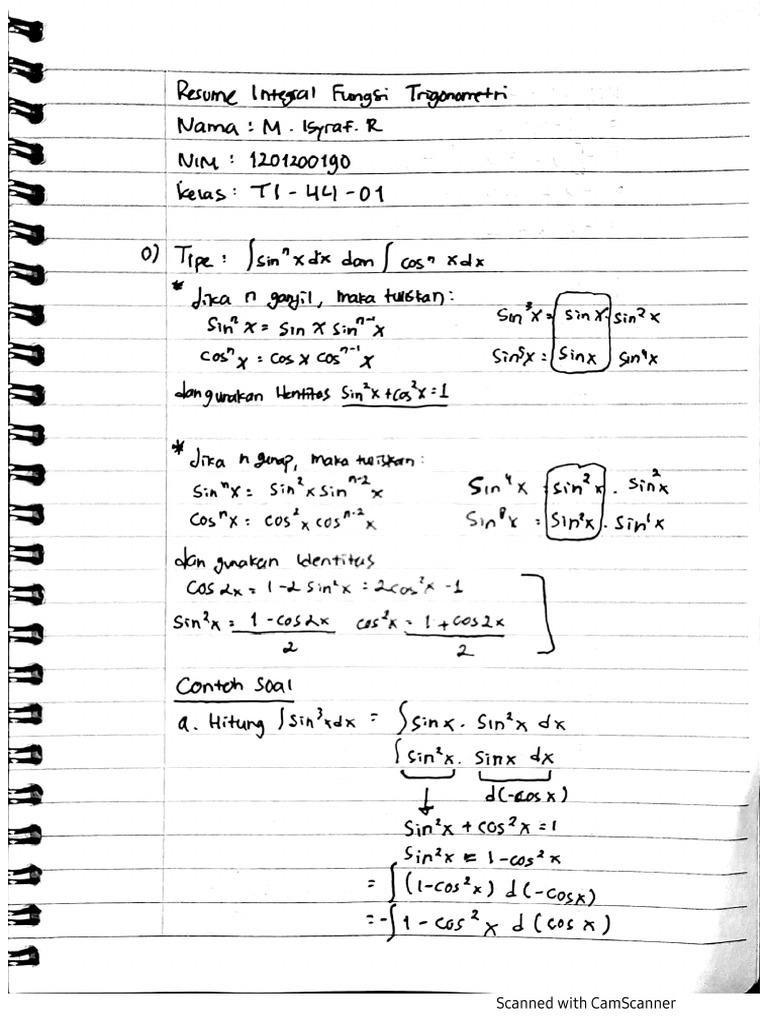 Resume Integral Fungsi Trigonometri
Nama : M. Isyraf. R
NIM : 1201200190
Kelas : TI - 44 - 01
0) Tipe : ∫ sinⁿ x dx dan ∫ cosⁿ x dx
* Jika n ganjil, maka tuliskan :
Sinⁿ x = Sin x Sinⁿ⁻¹ x
Cosⁿ x = Cos x Cosⁿ⁻¹ x
Sin³x = Sin x . Sin² x
Sin⁵x = Sin x Sin⁴x
dan gunakan Identitas Sin²x + Cos²x = 1
* Jika n genap, maka tuliskan :
Sinⁿx = Sin²x Sinⁿ⁻² x
Cosⁿx = Cos²x Cosⁿ⁻² x
Sin⁴x = Sin²x . Sin²x
= Sin²x .
dan gunakan Identitas
Cos 2x = 1 - 2 Sin²x = 2 cos²x - 1
Sin²x = 1 - cos 2x / 2 cos²x = 1 + cos 2x / 2
Contoh Soal
a. Hitung ∫ Sin³x dx = ∫ Sin x . Sin²x dx
∫ Sin²x . Sin x dx
d(-cos x)
Sin²x + cos²x = 1
Sin²x = 1 - cos²x
= ∫ (1 - cos²x) d(-cos x)
= -∫ 1 - cos² x d(cos x)
Scanned with CamScanner